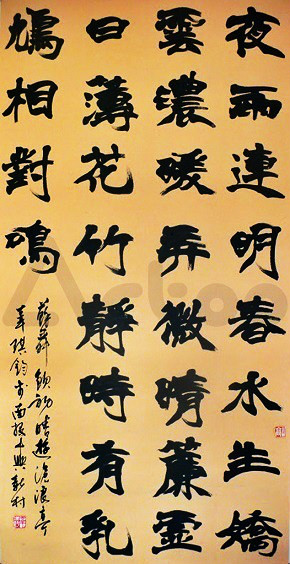 夜雨連明春水生嬌
雲濃暖弄微晴簾虛
日薄花竹靜時有乳
鳩相對鳴
蘇舜欽初晴遊滄浪亭
琪鈞於南投中興新村